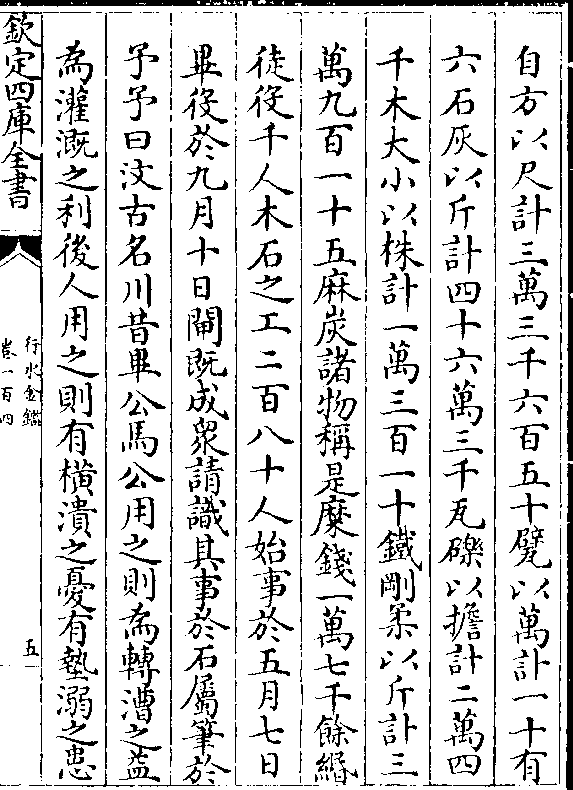 自方以尺計三萬三千六百五十甓以萬計一十有
六石灰以斤計四十六萬三千瓦礫以擔計二萬四
千木大小以株計一萬三百一十鐵剛柔以斤計三
萬九百一十五麻炭諸物稱是糜錢一萬七千餘緡
徒役千人木石之工二百八十人始事於五月七日
畢役於九月十日閘既成衆請識其事於石屬筆於
予予曰汶古名川昔畢公馬公用之則為轉漕之益
為灌溉之利後人用之則有橫潰之憂有墊溺之患
欽定四庫全書
行水金鑑
卷一百四
五